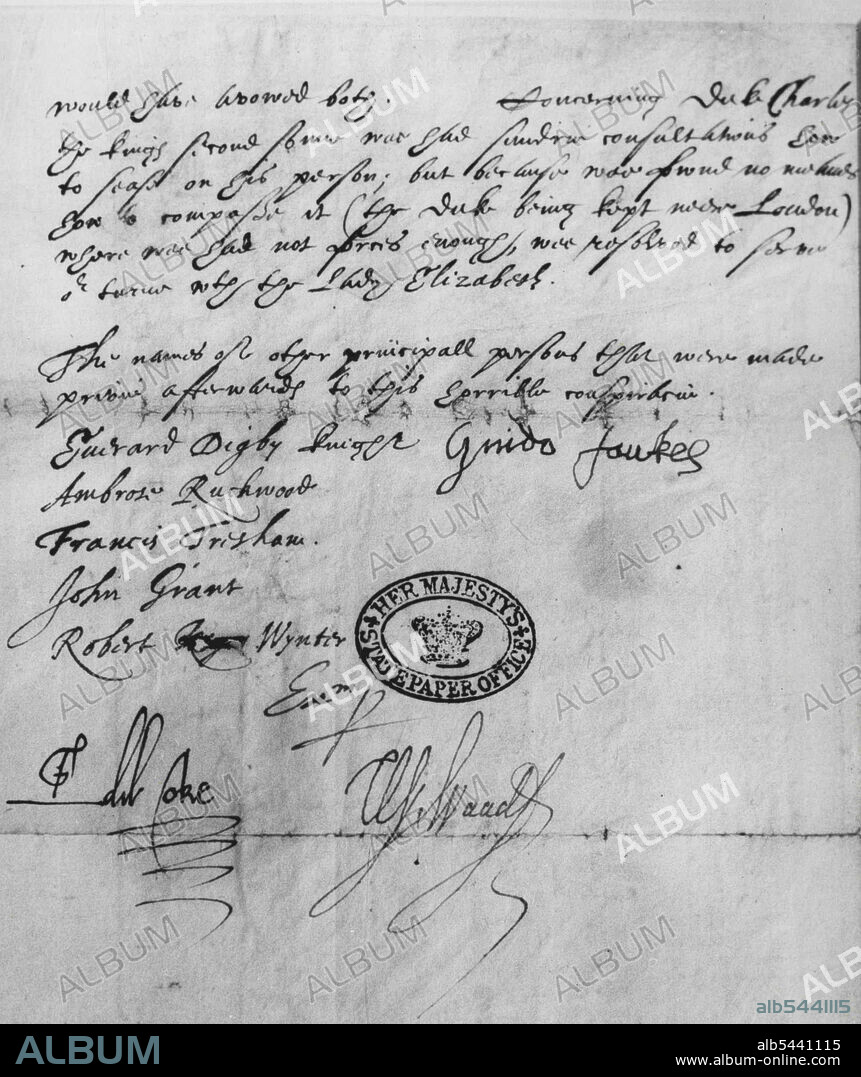 would have avowed both. Concerning Duke Charles
the kings second sonne wee had sundrie consultations how
to sease on his person; but because wee found no meanes
how to compasse it (the Duke being kept neere London)
where wee had not forces enough, wee resolved to serve
or turne wth the Lady Elizabeth.
The names of other principall persons that were made
privie afterwards to this horrible conspiracie.
Everard Digby knight Guido fawkes
Ambrose Ruckwood
Francis Tresham.
John Grant
Robert Wynter
HER MAJESTY'S STATE PAPER OFFICE
Edw Coke W Waad
ALBUM
alb5441115
ALBUM
alb5441115
www.album-online.com